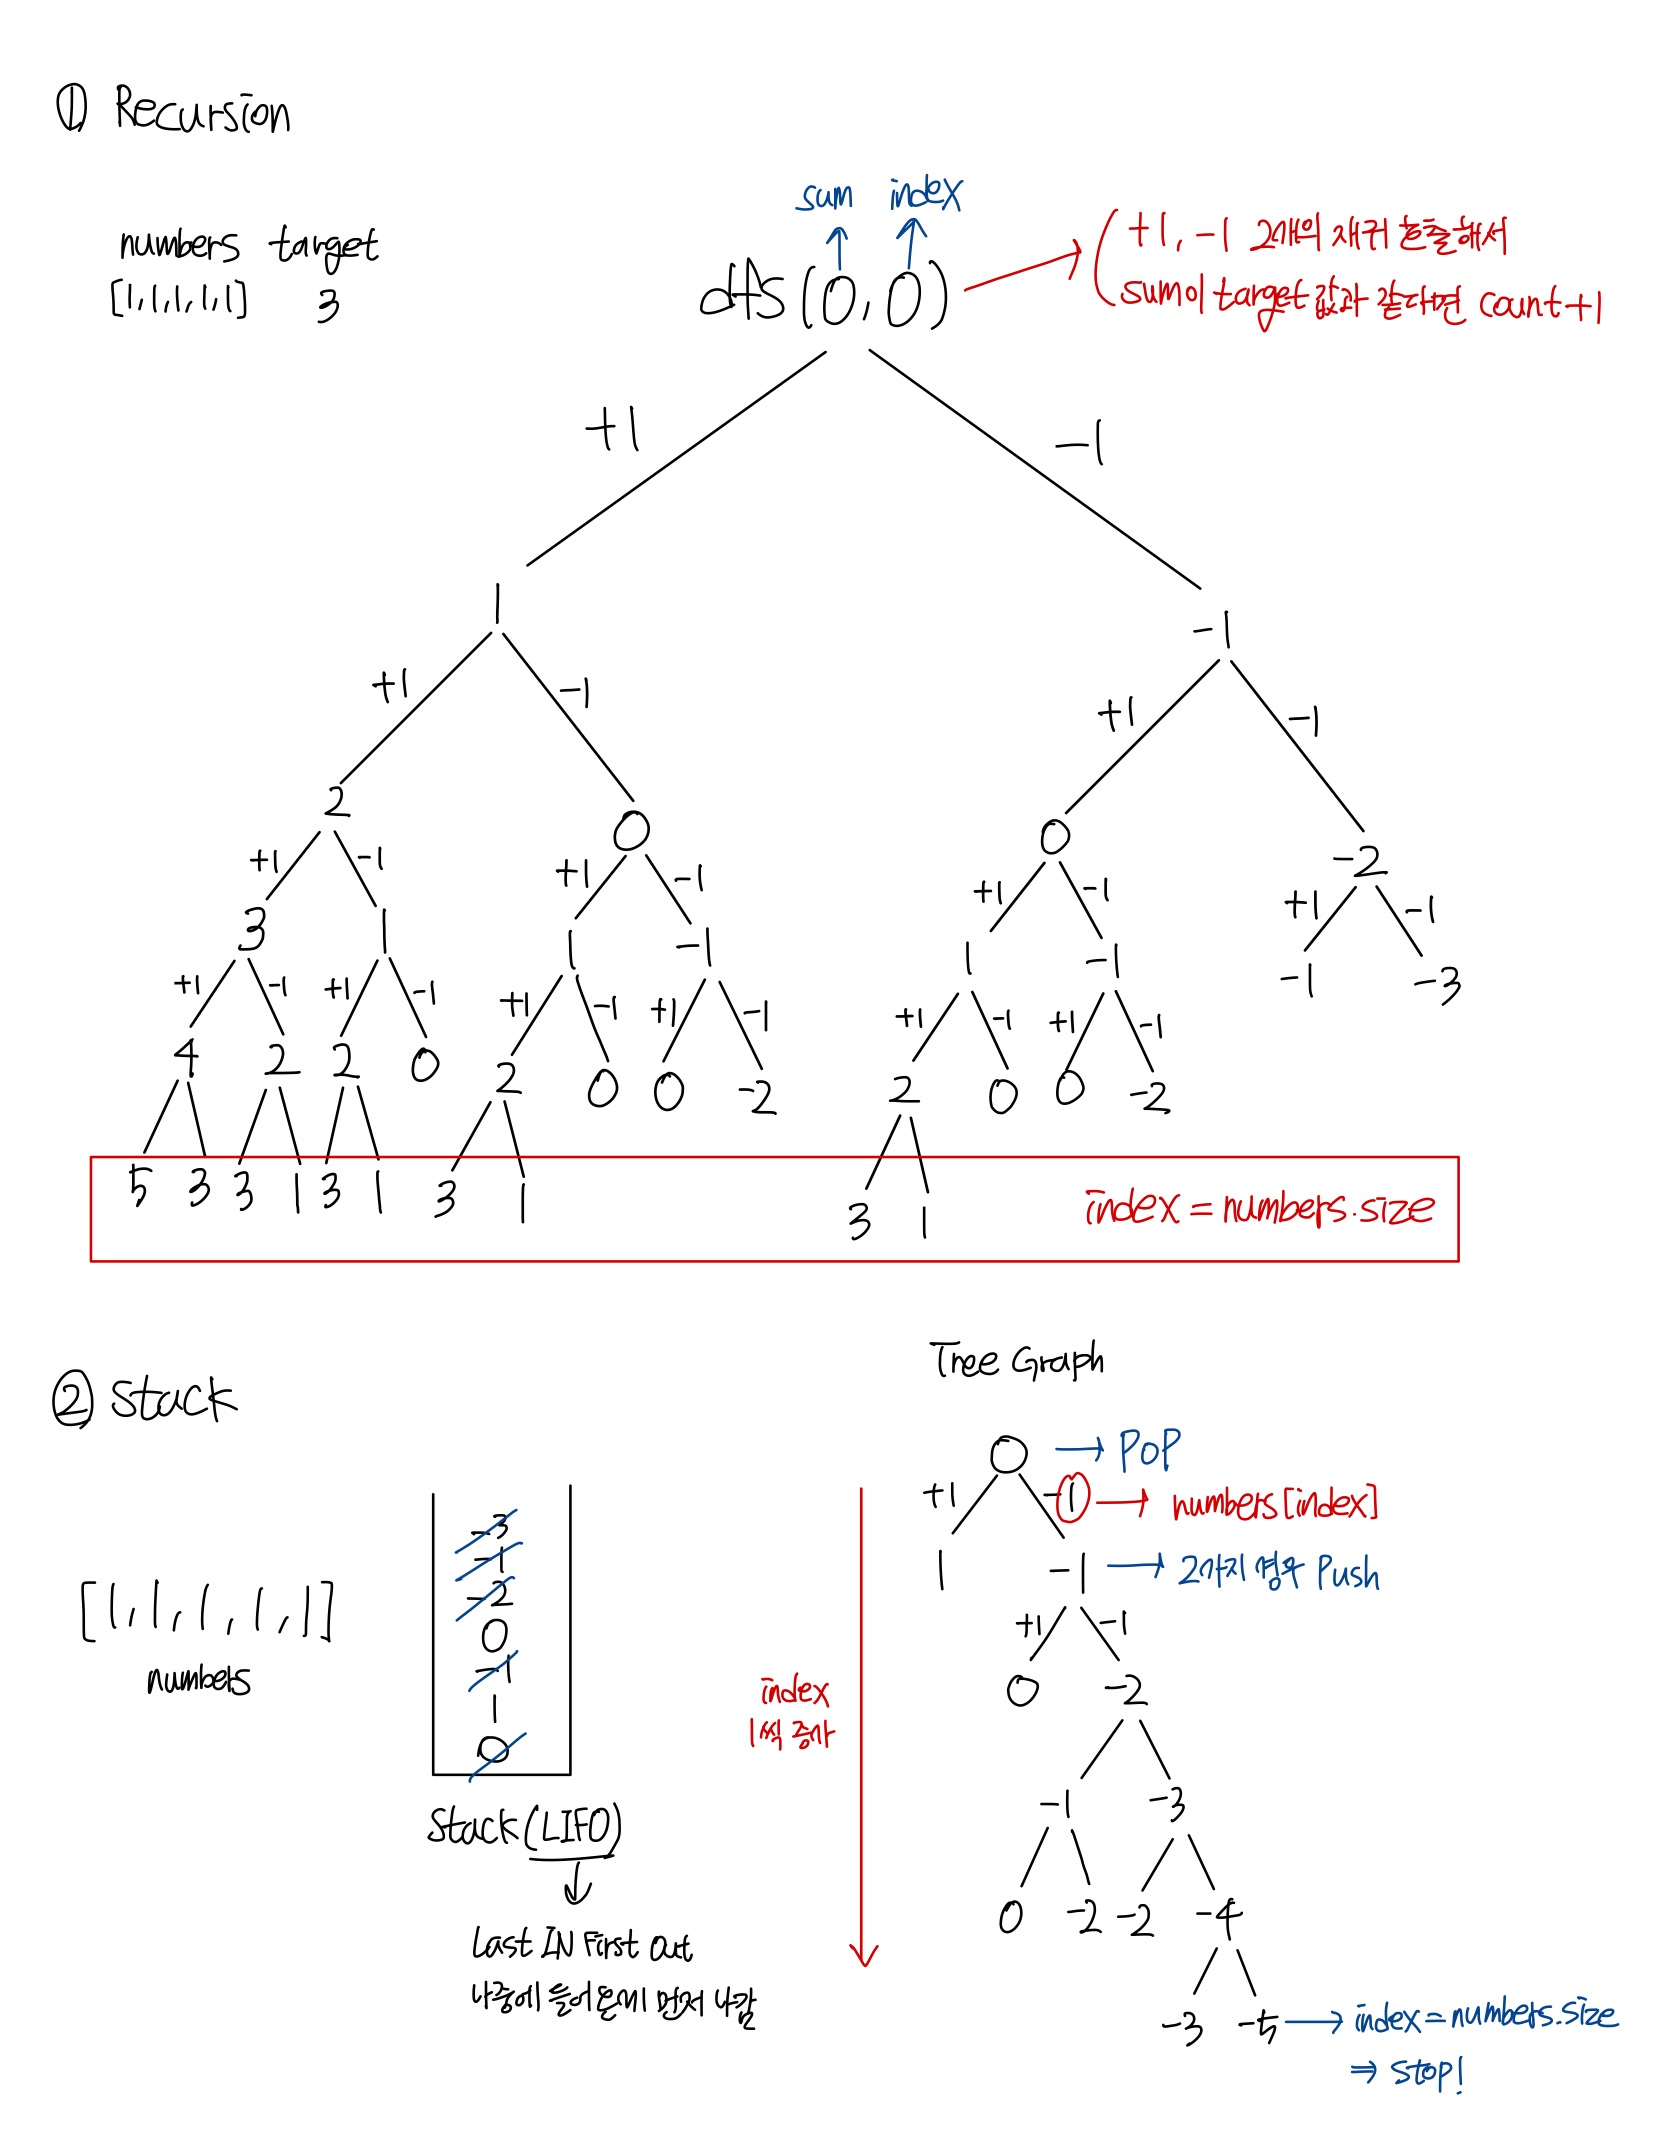 ① Recursion
sum index
numbers target
[1,1,1,1,1] 3
dfs(0,0)
+1, -1 2개의 재귀 호출해서
sum이 target값과 같다면 count+1
+1 -1
1 -1
+1 -1 +1 -1
2 0 0 -2
+1 -1 +1 -1 +1 -1 +1 -1
3 1 1 -1 1 -1 -1 -3
+1 -1 +1 -1 +1 -1 +1 -1 +1 -1 +1 -1
4 2 2 0 2 0 0 -2 2 0 0 -2
5 3 3 1 3 1 3 1 3 1
index = numbers.size
② Stack
[1,1,1,1,1]
numbers
-3
-1
-2
0
-1
1
0
Stack(LIFO)
Last IN First Out
나중에 들어온게 먼저 나감
Tree Graph
index
1씩 증가
0 → POP
+1 -1 → numbers[index]
1 -1 → 2가지 경우 Push
+1 -1
0 -2
-1 -3
0 -2 -2 -4
-3 -5 → index=numbers.size
⇒ stop!